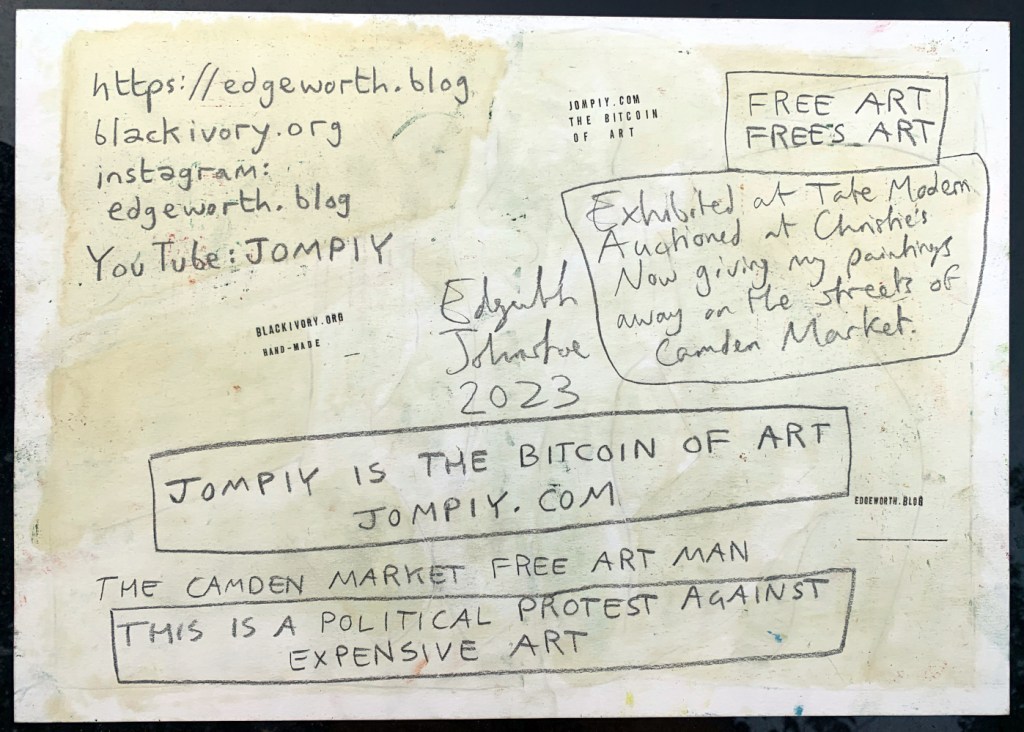 https://edgeworth.blog
blackivory.org
instagram:
edgeworth.blog
YouTube: JOMPIY
JOMPIY.COM
THE BITCOIN
OF ART
FREE ART
FREE'S ART
Exhibited at Tate Modern
Auctioned at Christie's
Now giving my paintings
away on the streets of
Camden Market.
BLACKIVORY.ORG
HAND-MADE
Johnstone
2023
JOMPIY IS THE BITCOIN OF ART
JOMPIY.COM
EDGEWORTH.BLOG
THE CAMDEN MARKET FREE ART MAN
THIS IS A POLITICAL PROTEST AGAINST
EXPENSIVE ART